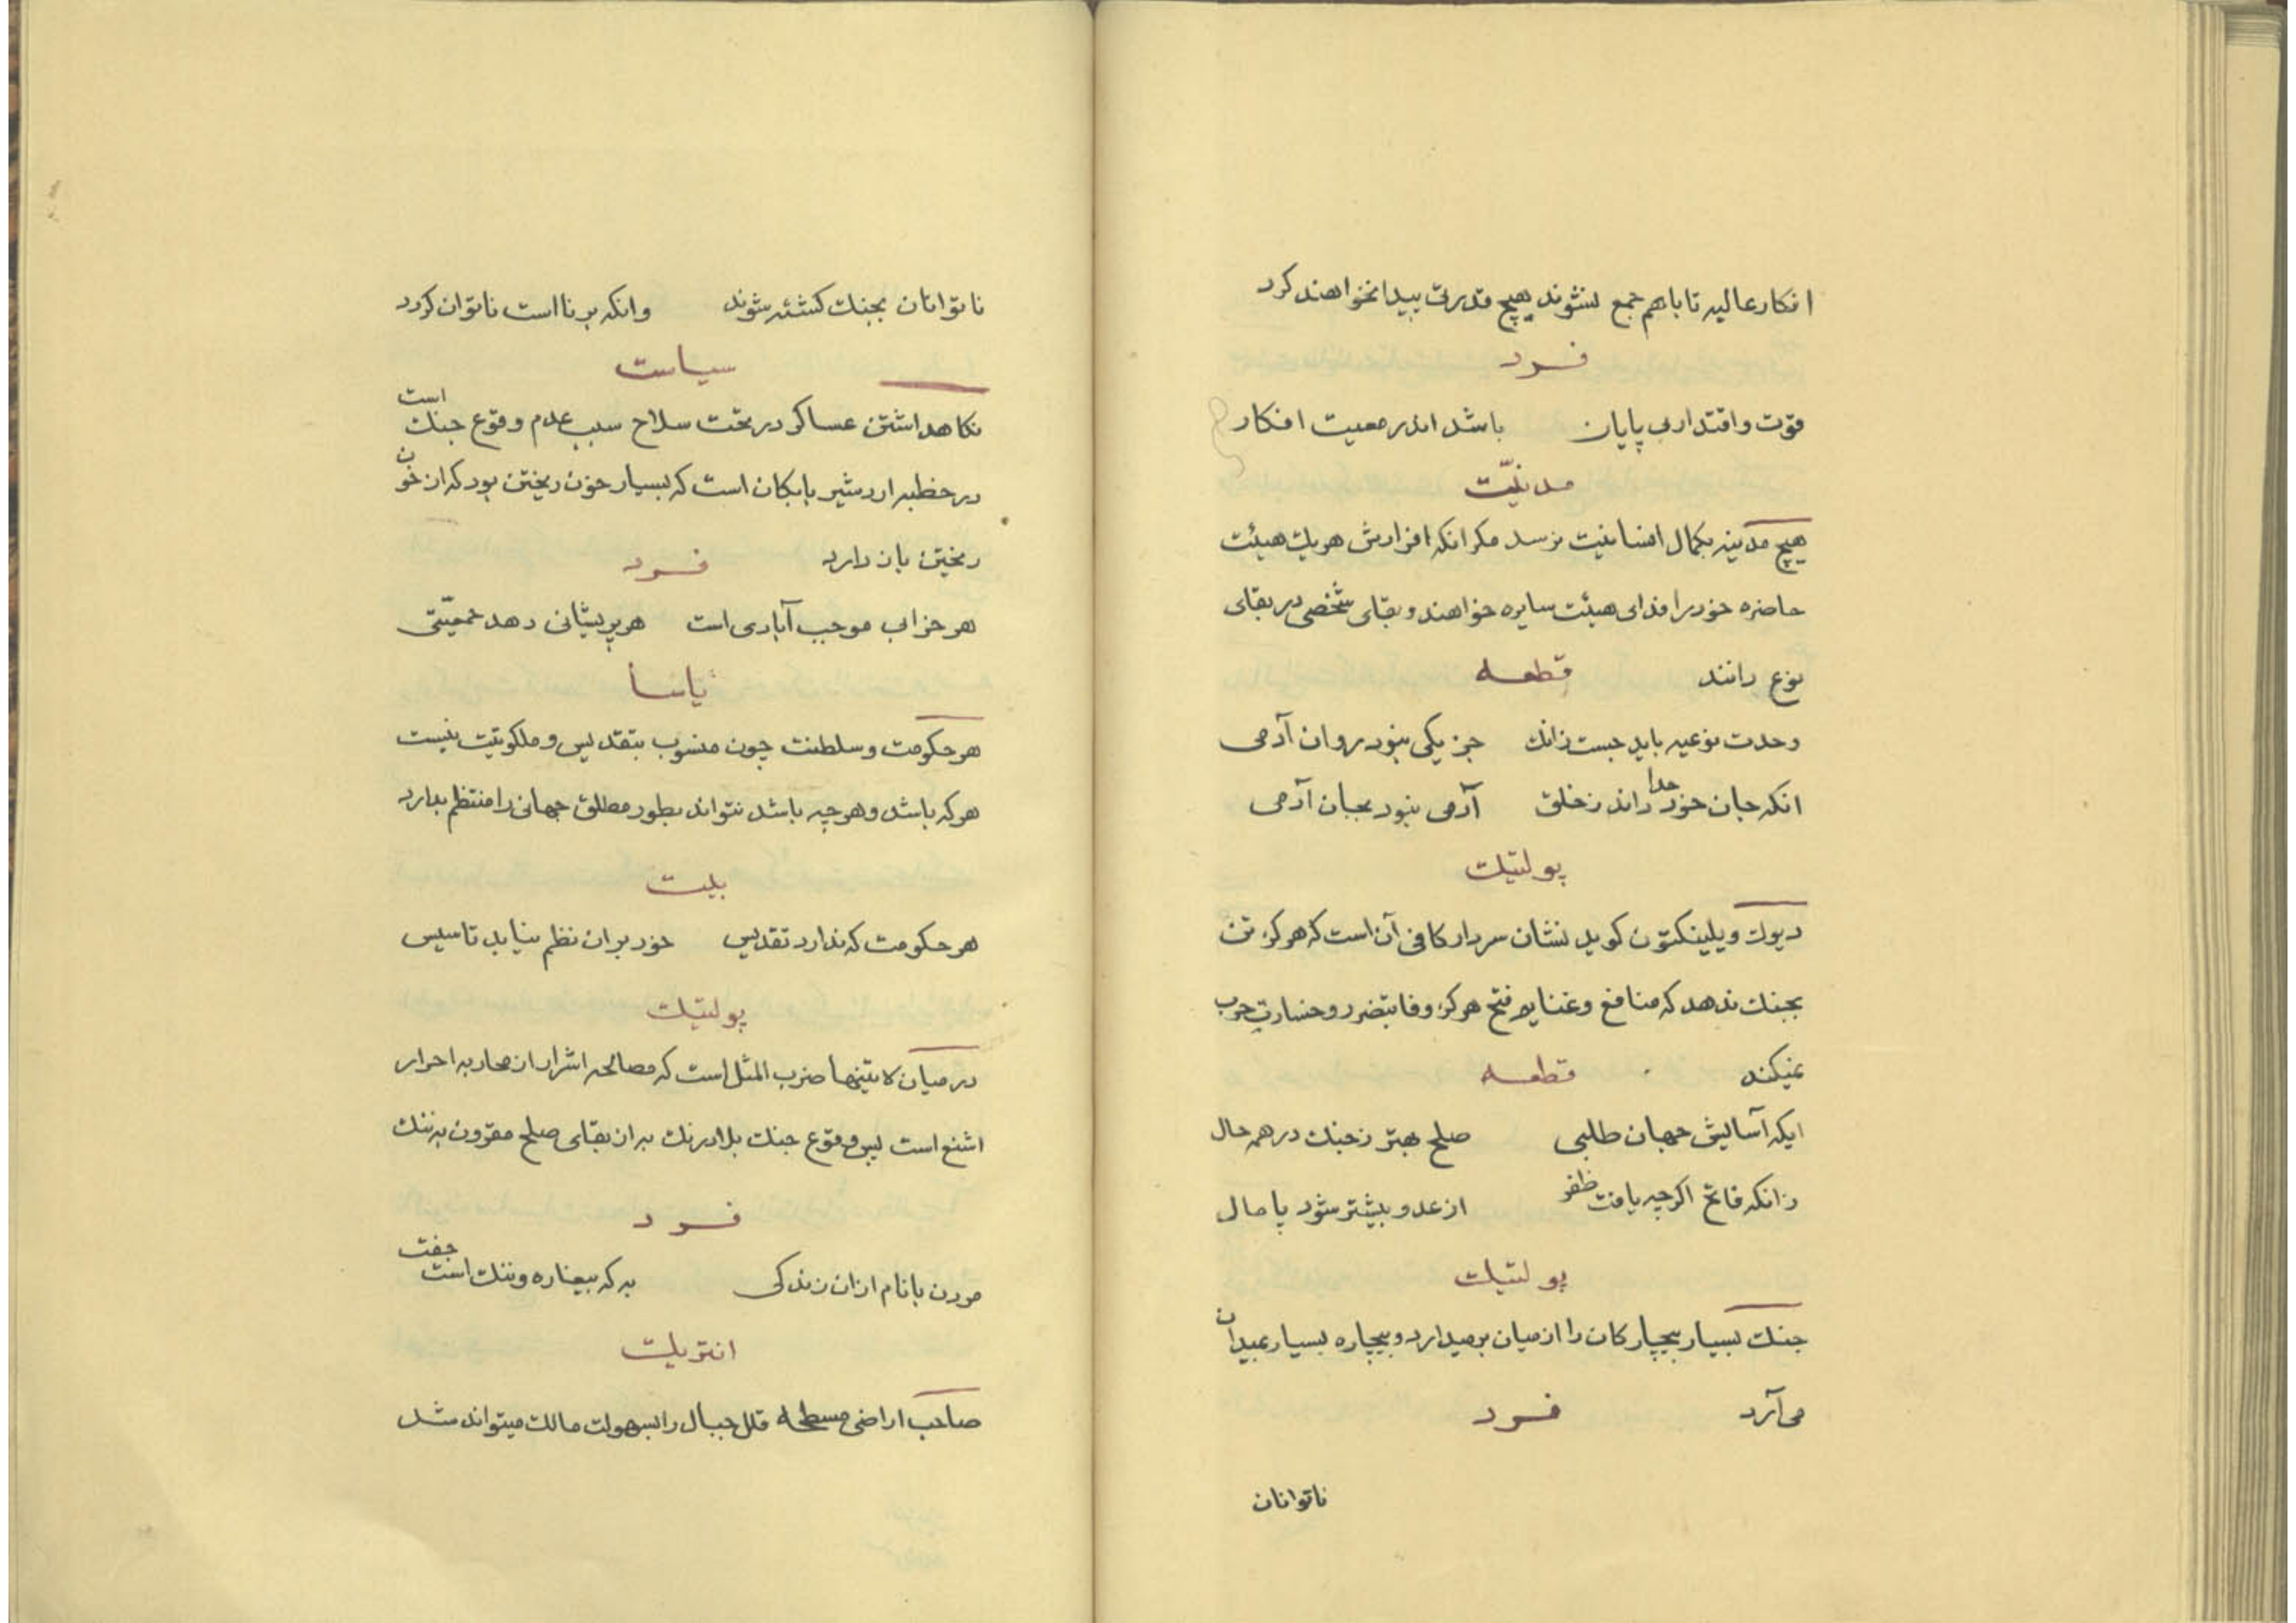 افکار عالیه تا باهم جمع نشوند هیچ قدرتی پیدا نخواهند کرد
فرد
قوّت و اقتدار بی پایان باشد اندر معیت افکار
مدنیّت
هیچ مدینه بکمال انسانیت نرسد مکر انکه افرادش هریك هیئت
حاضره خود را فدای هیئت سایره خواهند و بقای شخصی در بقای
نوع دانند قطعه
وحدت نوعیه باید جست زانك جز یکی نبود روان آدمی
انکه جان خود جدا داند ز خلق آدمی نبود بجان آدمی
پولتیك
دیوك ویلینکتون کوید نشان سردار کافی آن است که هرکز تن
بجنك ندهد که منافع و غنایم فتح هرکز وفا بتضرر و خسارت حرب
نمیکند قطعه
ایکه آسایش جهان طلبی صلح بهتر ز جنك در همه حال
زانکه فاتح اکرچه یافت ظفر از عدو بیشتر شود پامال
پولتیك
جنك بسیار بیچارکان را از میان برمیدارد و بیچاره بسیار بمیدان
می‌آرد فرد
ناتوانان
ناتوانان بجنك کشته شوند وانکه برنا است ناتوان کردد
سیاست
نکاهداشتن عساکر در تحت سلاح سبب عدم وقوع جنك است
در خطبه اردشیر بابکان است که بسیار خون ریختن بود که از خون
ریختن باز دارد فرد
هر خرابی موجب آبادی است هر پریشانی دهد جمعیّتی
یاسا
هر حکومت و سلطنت چون منسوب بتقدیس و ملکوتیت نیست
هر که باشد و هر چه باشد نتواند بطور مطلق جهانی را منتظم بدارد
بیت
هر حکومت که ندارد تقدیس خود بران نظم نیابد تاسیس
پولتیك
در میان لاتینها ضرب المثل است که مصالحه اشرار از محاربه احرار
اشنع است پس وقوع جنك بلادرنك به از بقای صلح مقرون به ننك
فرد
مردن با نام ازان زندکی به که بیغاره و ننك است جفت
انتریك
صاحب اراضی مسطحه قلل جبال را بسهولت مالك میتواند شد